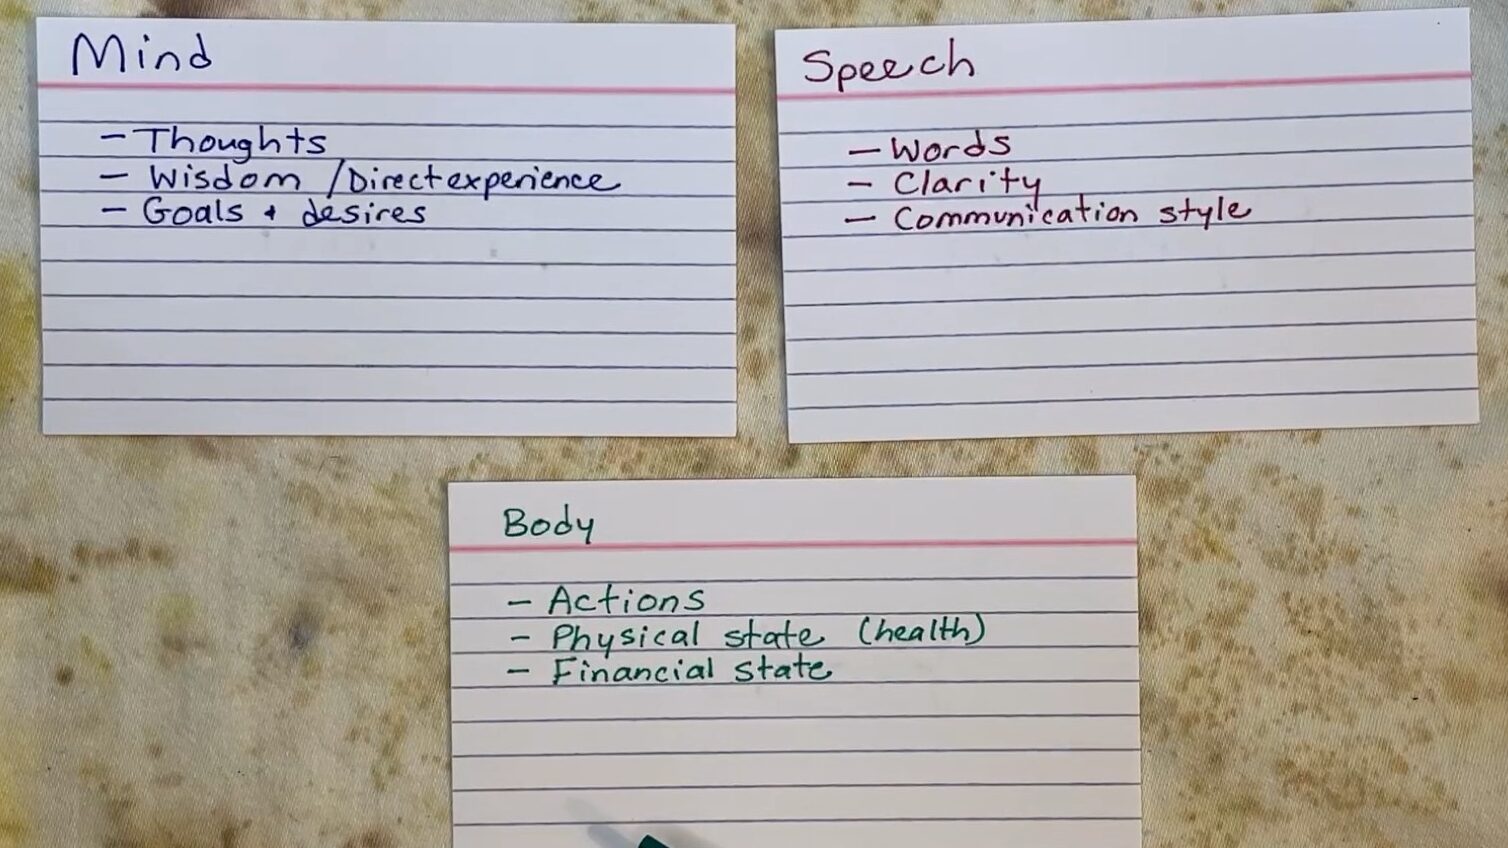 Mind
- Thoughts
- Wisdom / Direct experience
- Goals + desires
Speech
- Words
- Clarity
- Communication style
Body
- Actions
- Physical state (health)
- Financial state